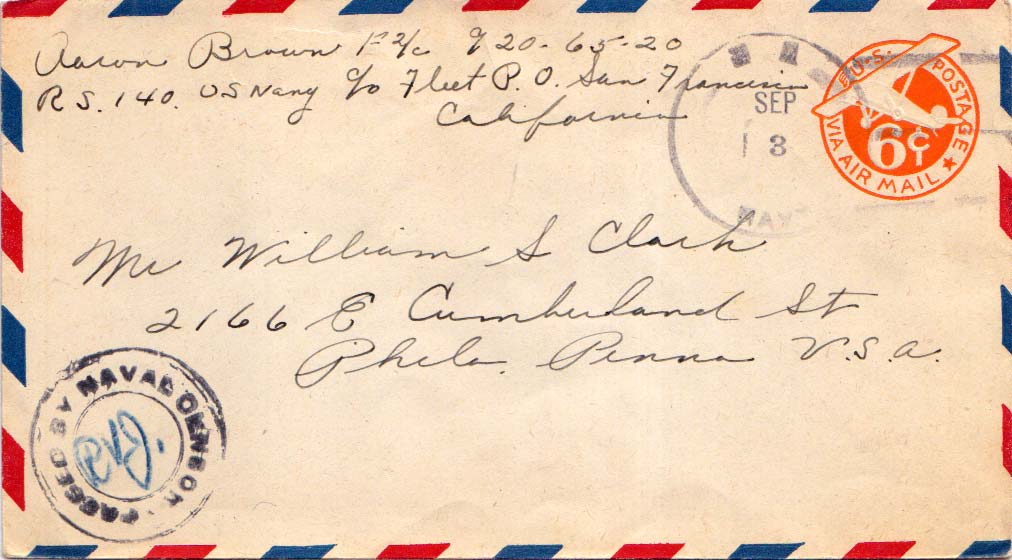 Aaron Brown F 2/c 920-65-20
R S. 140. US Navy c/o Fleet P. O. San Francisco
California
SEP
3
NAV
U.S. POSTAGE
6¢
VIA AIR MAIL
Mr William S Clark
2166 E Cumberland St
Phila Penna U.S.A.
PASSED BY NAVAL CENSOR